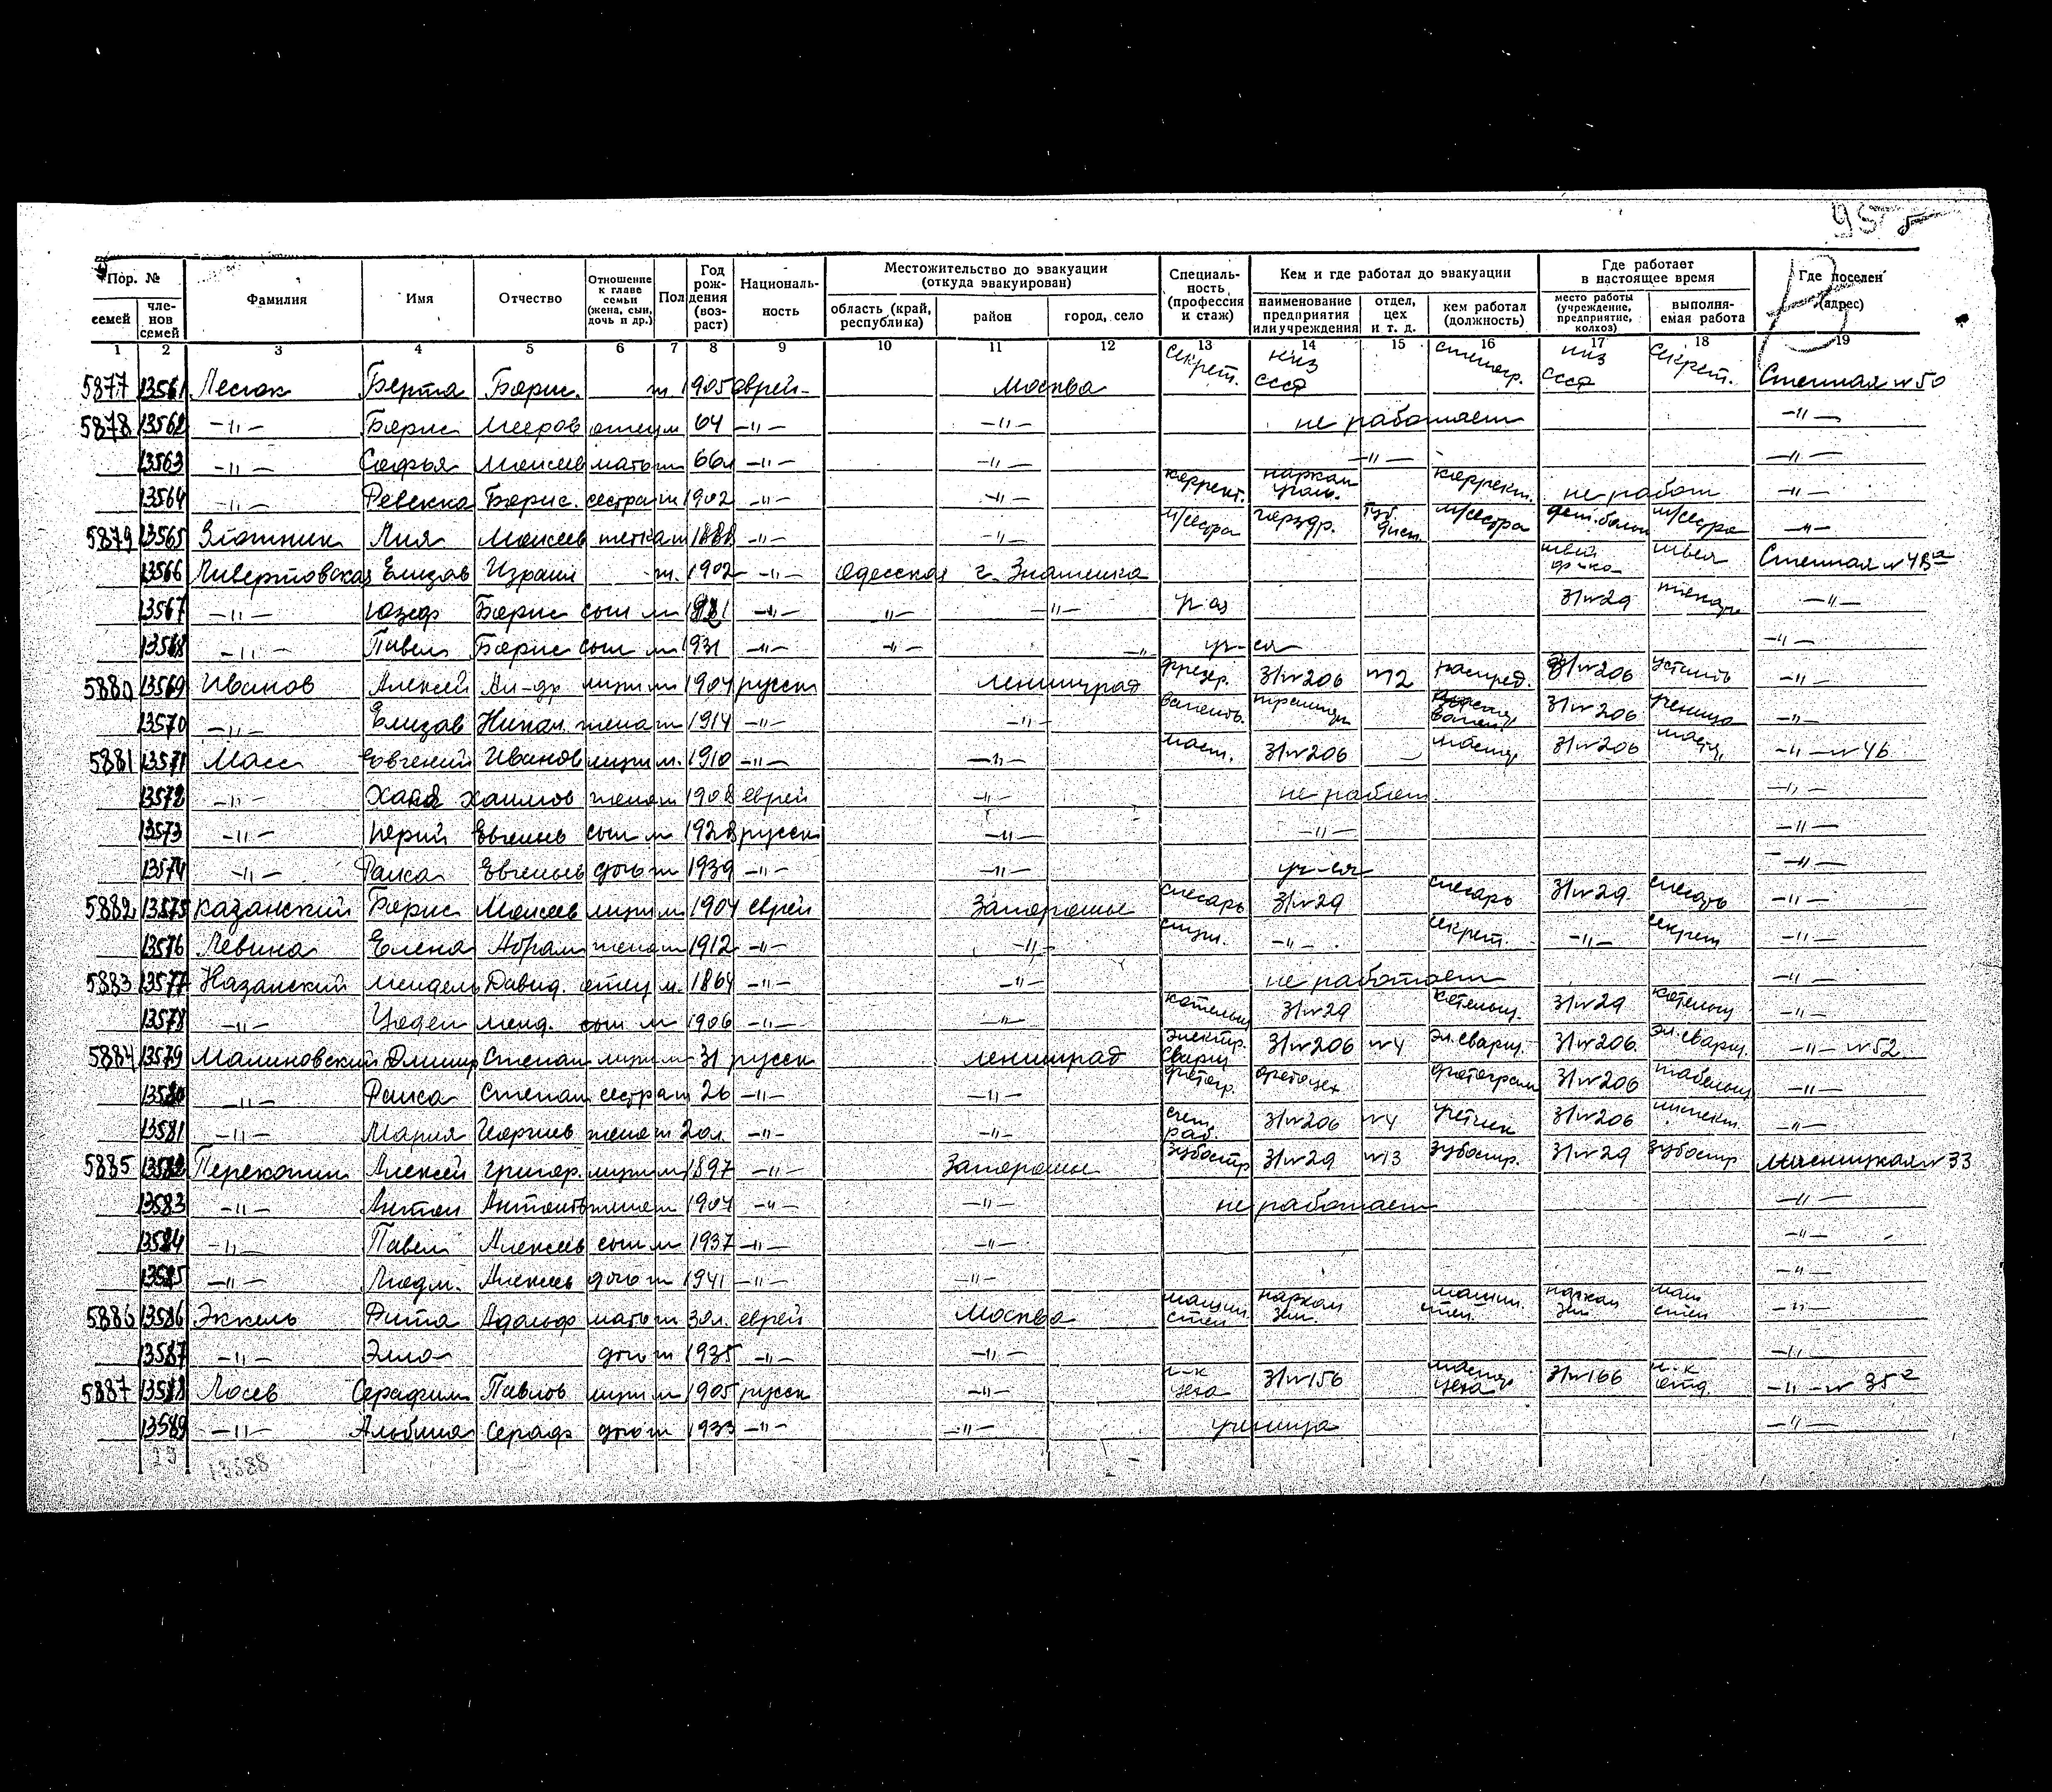 95
Пор. № Фамилия Имя Отчество Отношение к главе семьи (жена, сын, дочь и др.) Пол Год рождения (возраст) Национальность Местожительство до эвакуации (откуда эвакуирован) Специальность (профессия и стаж) Кем и где работал до эвакуации Где работает в настоящее время Где поселен (адрес)
семей членов семей область (край, республика) район город, село наименование предприятия или учреждения отдел, цех и т. д. кем работал (должность) место работы (учреждение, предприятие, колхоз) выполняемая работа
1 2 3 4 5 6 7 8 9 10 11 12 13 14 15 16 17 18 19
5877 13561 Берта Борис. ж 1905 еврей- Москва Секрет. СССР стеногр. СССР Секрет. Стенная № 50
5878 13562 -"- Борис Мееров отец м 64 -"- -"- не работает -"-
13563 -"- Софья Моисеев мать ж 66л -"- -"- -"- -"-
13564 -"- Ревекка Борис. сестра ж 1902 -"- -"- коррект. наркам коррект. не работ -"-
5879 13565 Лия Моисеев тетка ж 1888 -"- -"- м/сестра горздр. м/сестра м/сестра -"-
13566 Ливертовская Елизав Израил ж. 1902 -"- Одесская г. Знаменка швея Стенная №
13567 -"- Юзеф Борис сын м -"- -"- -"- З/№29 -"-
13568 -"- Павел Борис сын м 1931 -"- -"- -"- уч-ся -"-
5880 13569 Иванов Алексей Ал-др муж м 1904 русск Ленинград фрезер. З/№206 №12 распред. З/№206 -"-
13570 -"- Елизав Никол. жена ж 1914 -"- -"- З/№206 ученица -"-
5881 13571 Масс Евгений Иванов муж м. 1910 -"- -"- маст. З/№206 - мастер З/№206 мастер -"- № 46
13572 -"- Хая Хаимов жена ж 1908 еврей -"- не работ. -"-
13573 -"- Юрий Евгенев сын м 1928 русск -"- -"- -"-
13574 -"- Раиса Евгеньев дочь ж 1939 -"- -"- уч-ся -"-
5882 13575 Казанский Борис Моисеев муж м 1904 еврей Запорожье слесарь З/№29 слесарь З/№29. слесарь -"-
13576 Левина Елена Абрам жена ж 1912 -"- -"- -"- секрет. -"- секрет -"-
5883 13577 Казанский Мендель Давид. отец м. 1864 -"- -"- не работает -"-
13578 -"- Менд. сын м 1906 -"- -"- котельщ З/№29 котельщ. З/№29 котельщ -"-
5884 13579 Малиновский Дмитр Степан муж м 31 русск Ленинград электр. сварщ З/№206 №4 эл.сварщ. З/№206. эл.сварщ. -"- №52
13580 -"- Раиса Степан сестра ж 26 -"- -"- фотогр. фотоцех фотограф З/№206 табельщ -"-
13581 -"- Мария Георгиев жена ж 20л. -"- -"- счет. раб. З/№206 №4 учетчик З/№206 -"-
5885 13582 Перекопин Алексей Григор. муж м 1897 -"- Запорожье зубостр З/№29 №13 зубостр. З/№29 зубостр Мясницкая № 33
13583 -"- Антон Антонов жена ж 1907 -"- -"- не работает -"-
13584 -"- Павел Алексеев сын м 1937 -"- -"- -"-
13585 -"- Людм. Алексеев дочь ж 1941 -"- -"- -"-
5886 13586 Эккель Рита Адольф мать ж 30л. еврей Москва машин. стен наркам зем. машин. стен. наркам зем. маш стен -"-
13587 -"- Элла дочь ж 1935 -"- -"- -"-
5887 13588 Лосев Серафим Павлов муж м 1905 русск -"- н-к цеха З/№156 мастер цеха З/№166 н-к отд. -"- № 35
13589 -"- Альбина Сераф дочь ж 1933 -"- -"- ученица -"-
13588